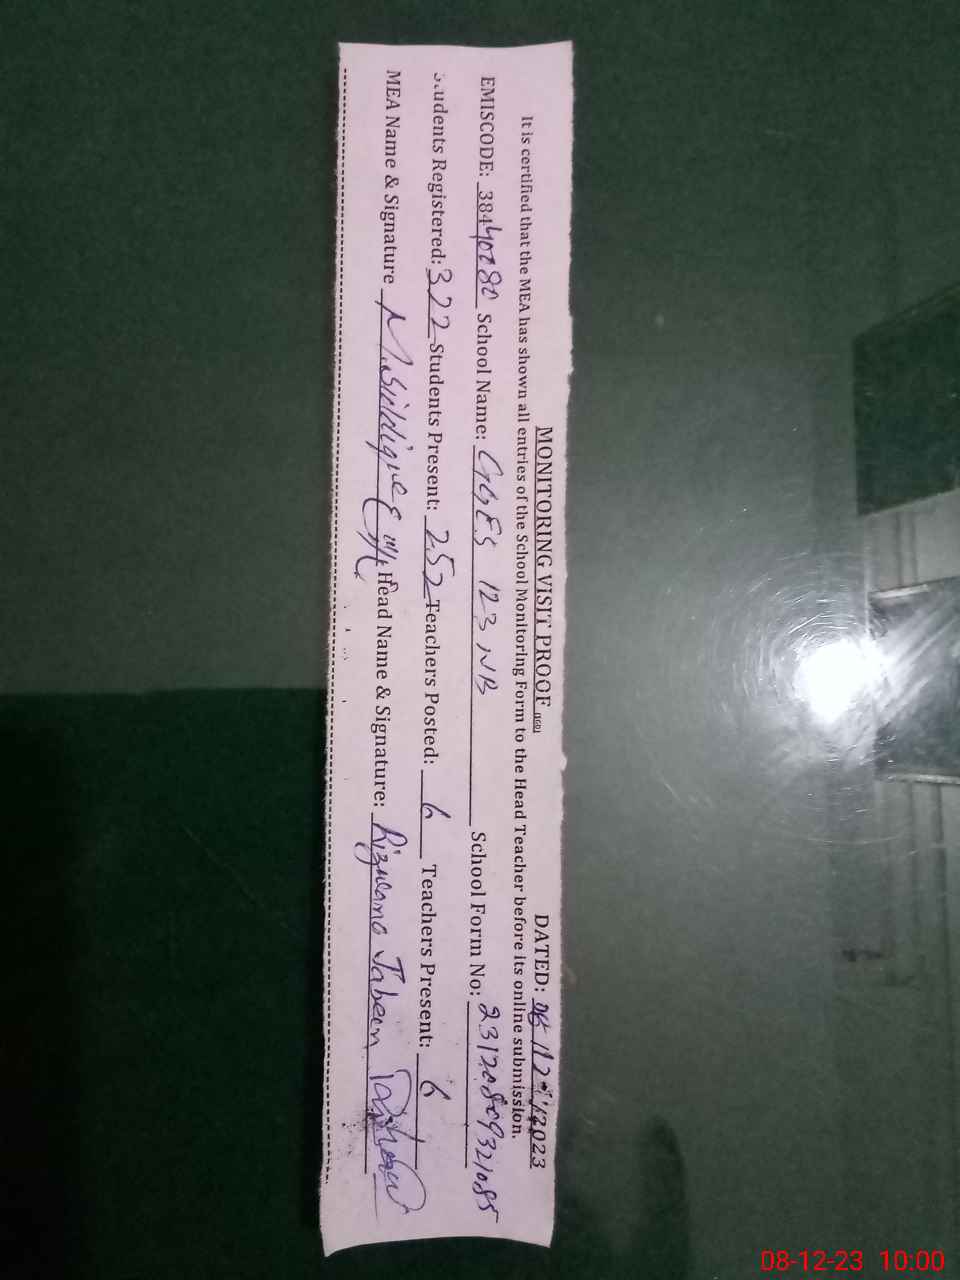 MONITORING VISIT PROOF DATED: 08/12/2023
It is certified that the MEA has shown all entries of the School Monitoring Form to the Head Teacher before its online submission.
EMISCODE: 38440080 School Name: GGES 123 NB School Form No: 23120809321085
Students Registered: 322 Students Present: 252 Teachers Posted: 6 Teachers Present: 6
MEA Name & Signature M. Siddique Head Name & Signature: Rizwana Jabeen
08-12-23 10:00